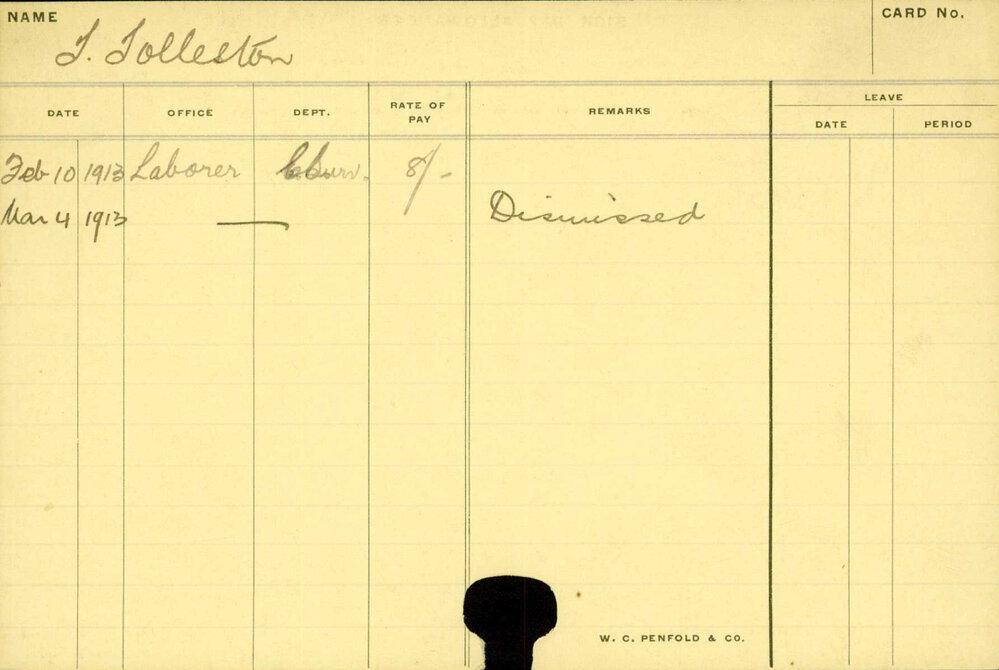 NAME
T. Tolleston
CARD No.
DATE OFFICE DEPT. RATE OF PAY REMARKS LEAVE
DATE PERIOD
Feb 10 1913 Laborer 8/-
Mar 4 1913 — Dismissed
W. C. PENFOLD & CO.